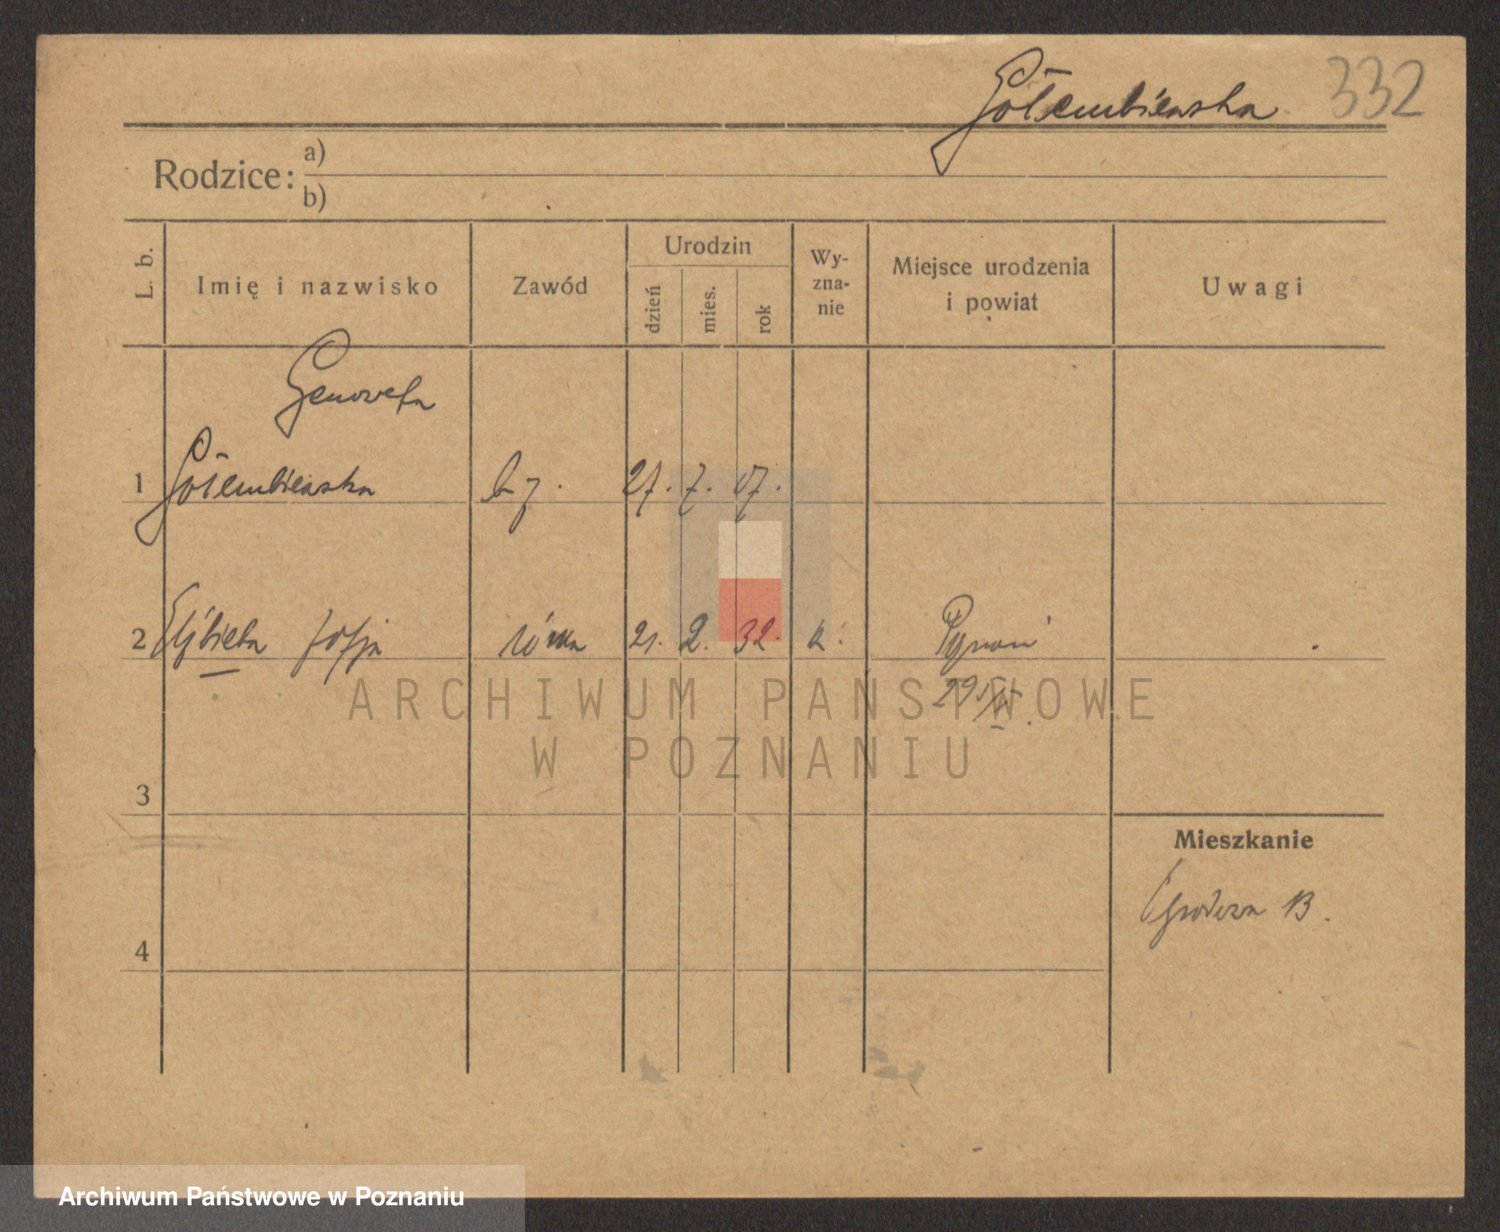 Gołembiewska 332
Rodzice: a)
b)
L. b.
Imię i nazwisko
Zawód
Urodzin
dzień
mies.
rok
Wy-
zna-
nie
Miejsce urodzenia
i powiat
Uwagi
Genowefa
1 Gołembiewska b. 27. 7. 07.
2 Elżbieta Zofja córka 21. 2. 32. k.
ARCHIWUM PAŃSTWOWE
W POZNANIU
3
Mieszkanie
13.
4
Archiwum Państwowe w Poznaniu